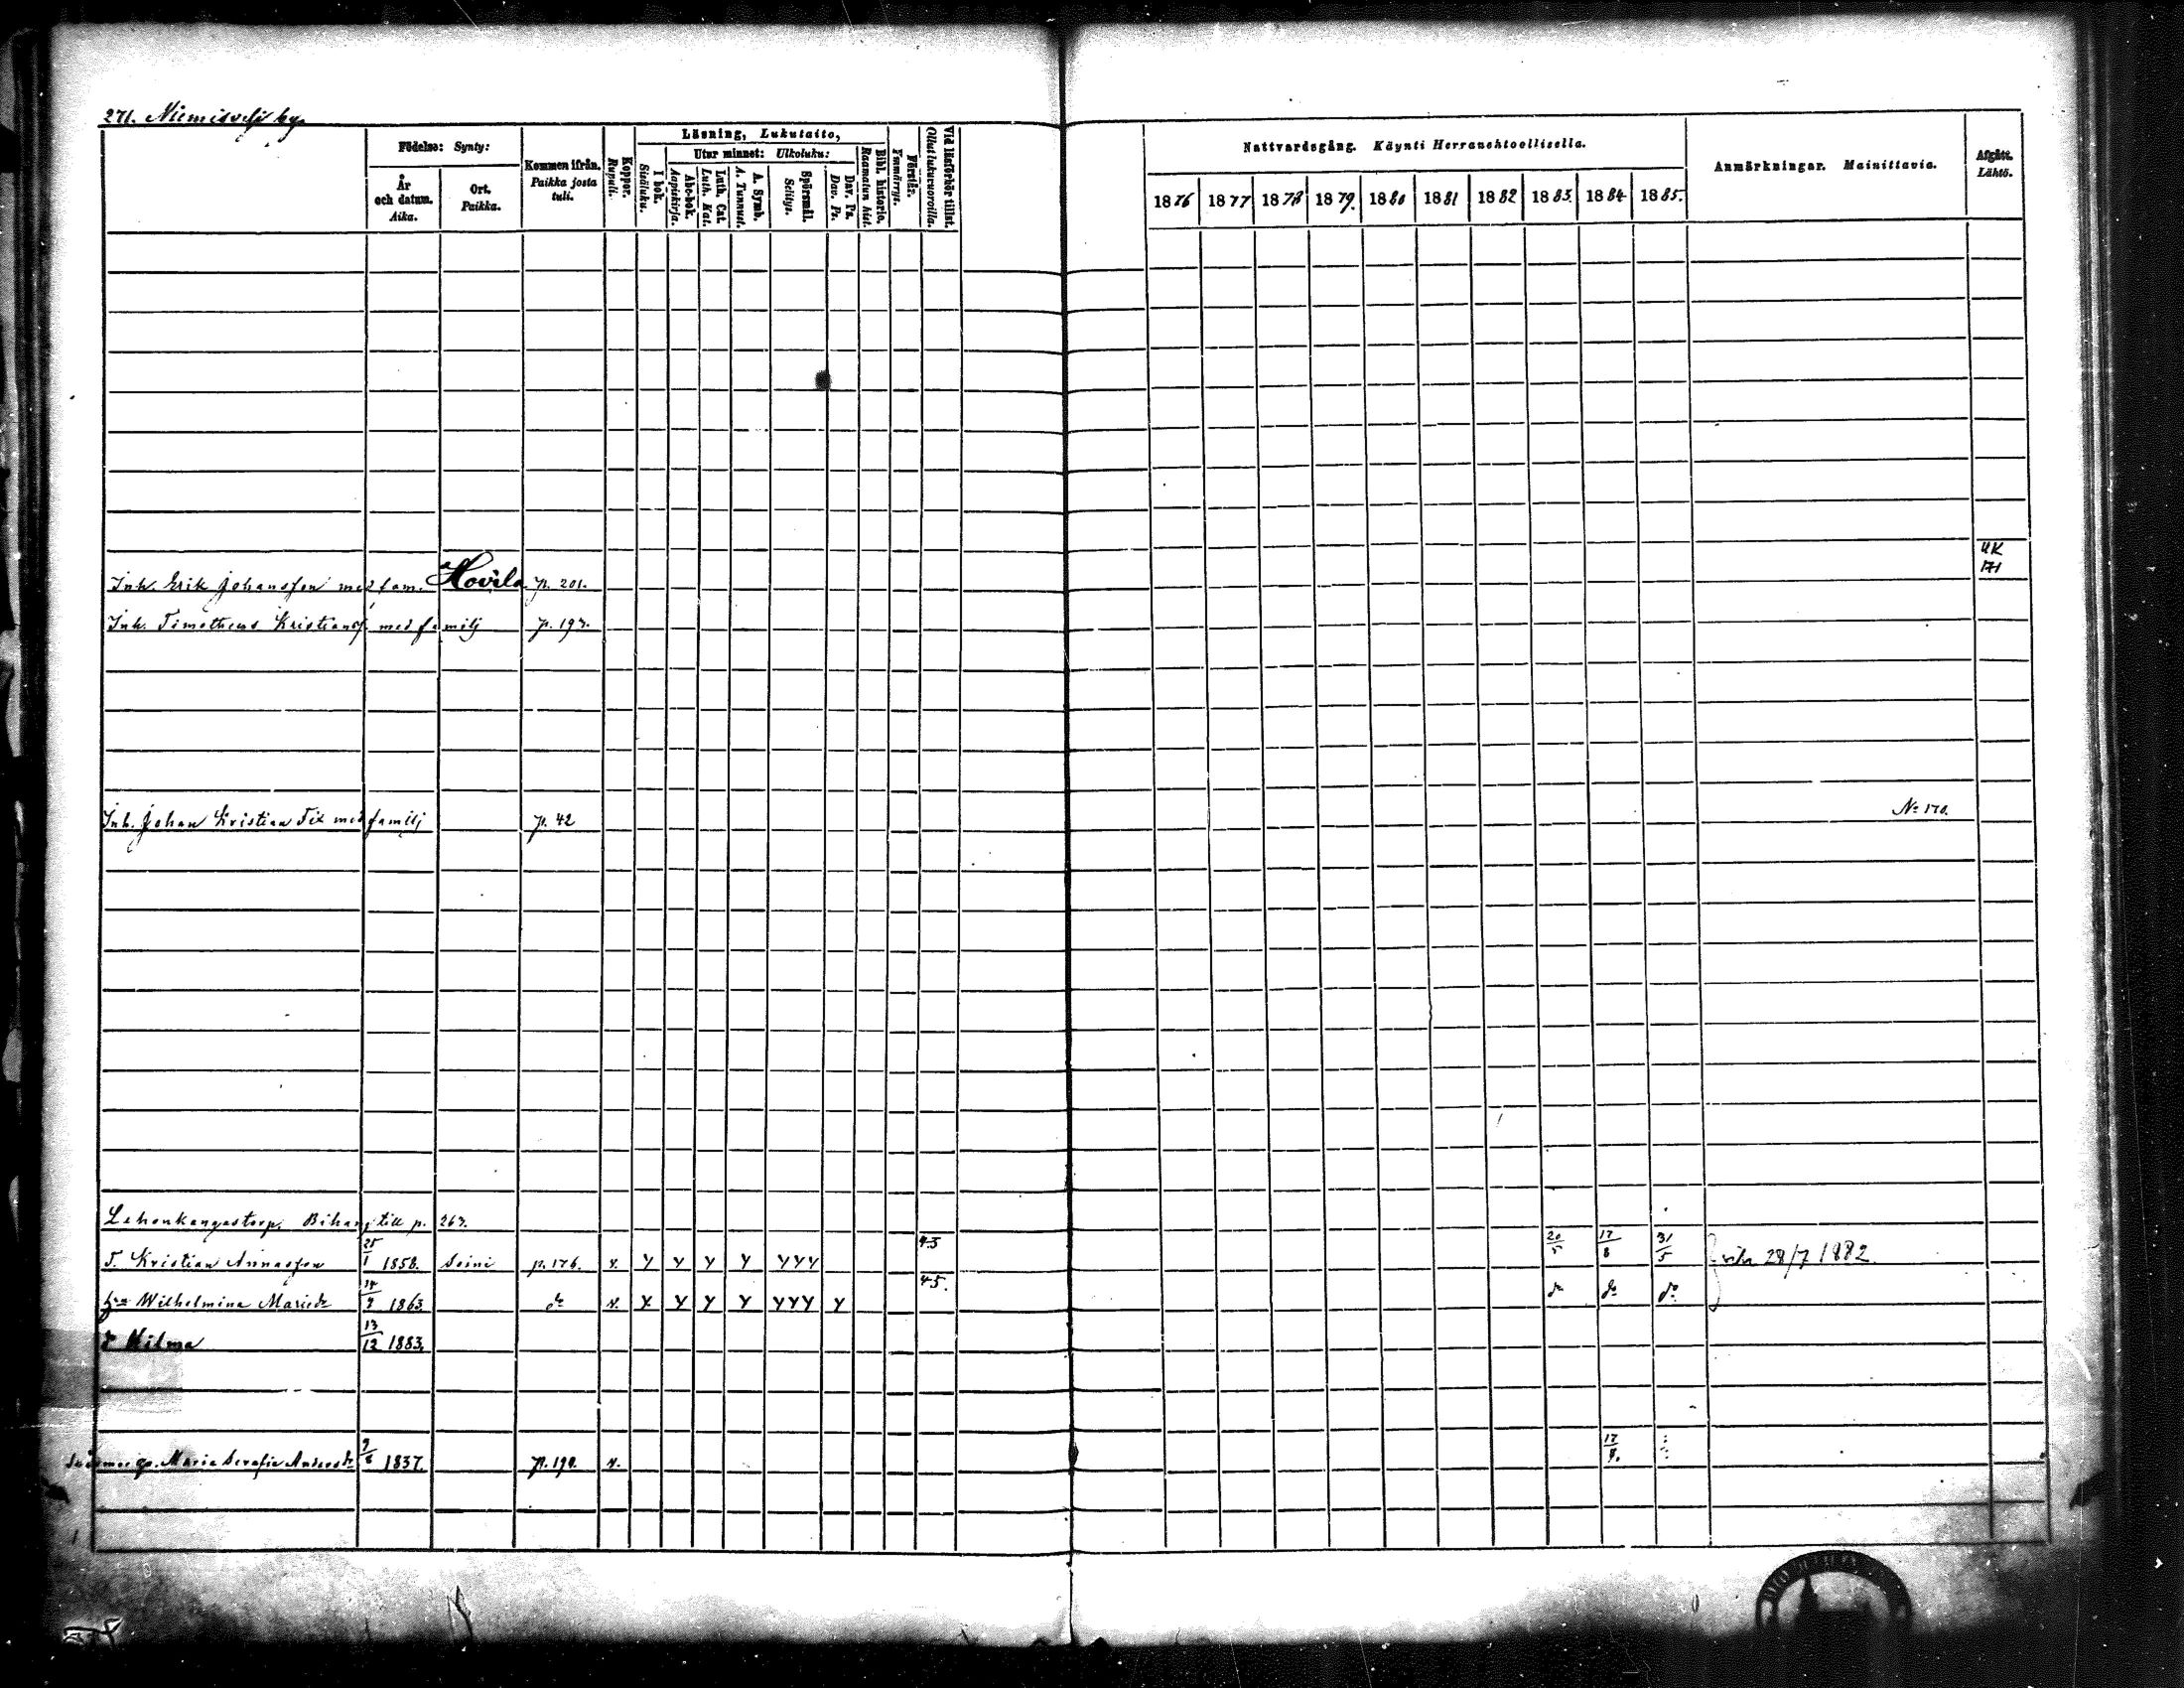 271. Niemisvesi by.
Födelse: Synty:
År och datum. Aika.
Ort. Paikka.
Kommen ifrån. Paikka josta tuli.
Koppor. Rupuli.
Läsning, Lukutaito,
I bok. Sisäluku.
Utur minnet: Ulkoluku:
Abc-bok. Aapiskirja.
Luth. Cat. Luth. Kat.
A. Symb. A. Tunnust.
Spörsmål. Selitys.
Dav. Ps. Dav. Ps.
Bibl. historie. Raamatun hist.
Förstår. Ymmärrys.
Vid läsförhör tillst. Ollut lukuvuoroilla.
Nattvardsgång. Käynti Herranehtoollisella.
1876 1877 1878 1879. 1880 1881 1882 1883. 1884 1885.
Anmärkningar. Mainittavia.
Afgått. Lähtö.
Inh. Erik Johansson med fam. Hovila p. 201. UK 171
Inh. Timotheus Kristianss. med familj p. 193.
Inh. Johan Kristian Fix med familj p. 42 No 170.
Lehonkangastorp. Bihang till p. 263.
T. Kristian Annasson 25/1 1858. Soini p. 176. v. Y Y Y Y YYY 43 20/5 17/8 31/5 28/7 1882.
Wilhelmina Mariedr 1863 do v. Y Y Y Y YYY Y 45. do do do
d Hilma 13/12 1883.
Maria Serafia Andersdr 1837. p. 190. v. 17/8.